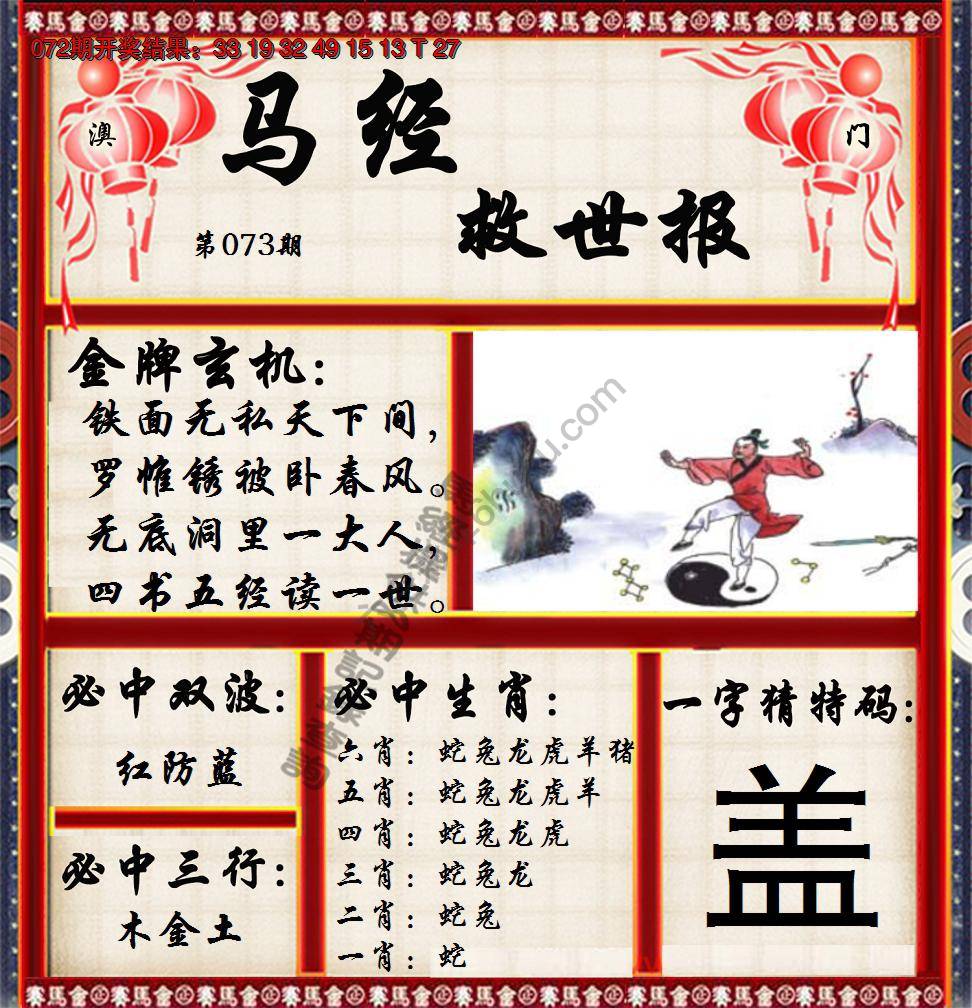 072期开奖结果：33 19 32 49 15 13 T 27
澳
门
马经
救世报
第073期
金牌玄机：
铁面无私天下间，
罗惟锈被卧春风。
无底洞里一大人，
四书五经读一世。
必中双波：
红防蓝
必中三行：
木金土
必中生肖：
六肖：蛇兔龙虎羊猪
五肖：蛇兔龙虎羊
四肖：蛇兔龙虎
三肖：蛇兔龙
二肖：蛇兔
一肖：蛇
一字猜特码：
盖